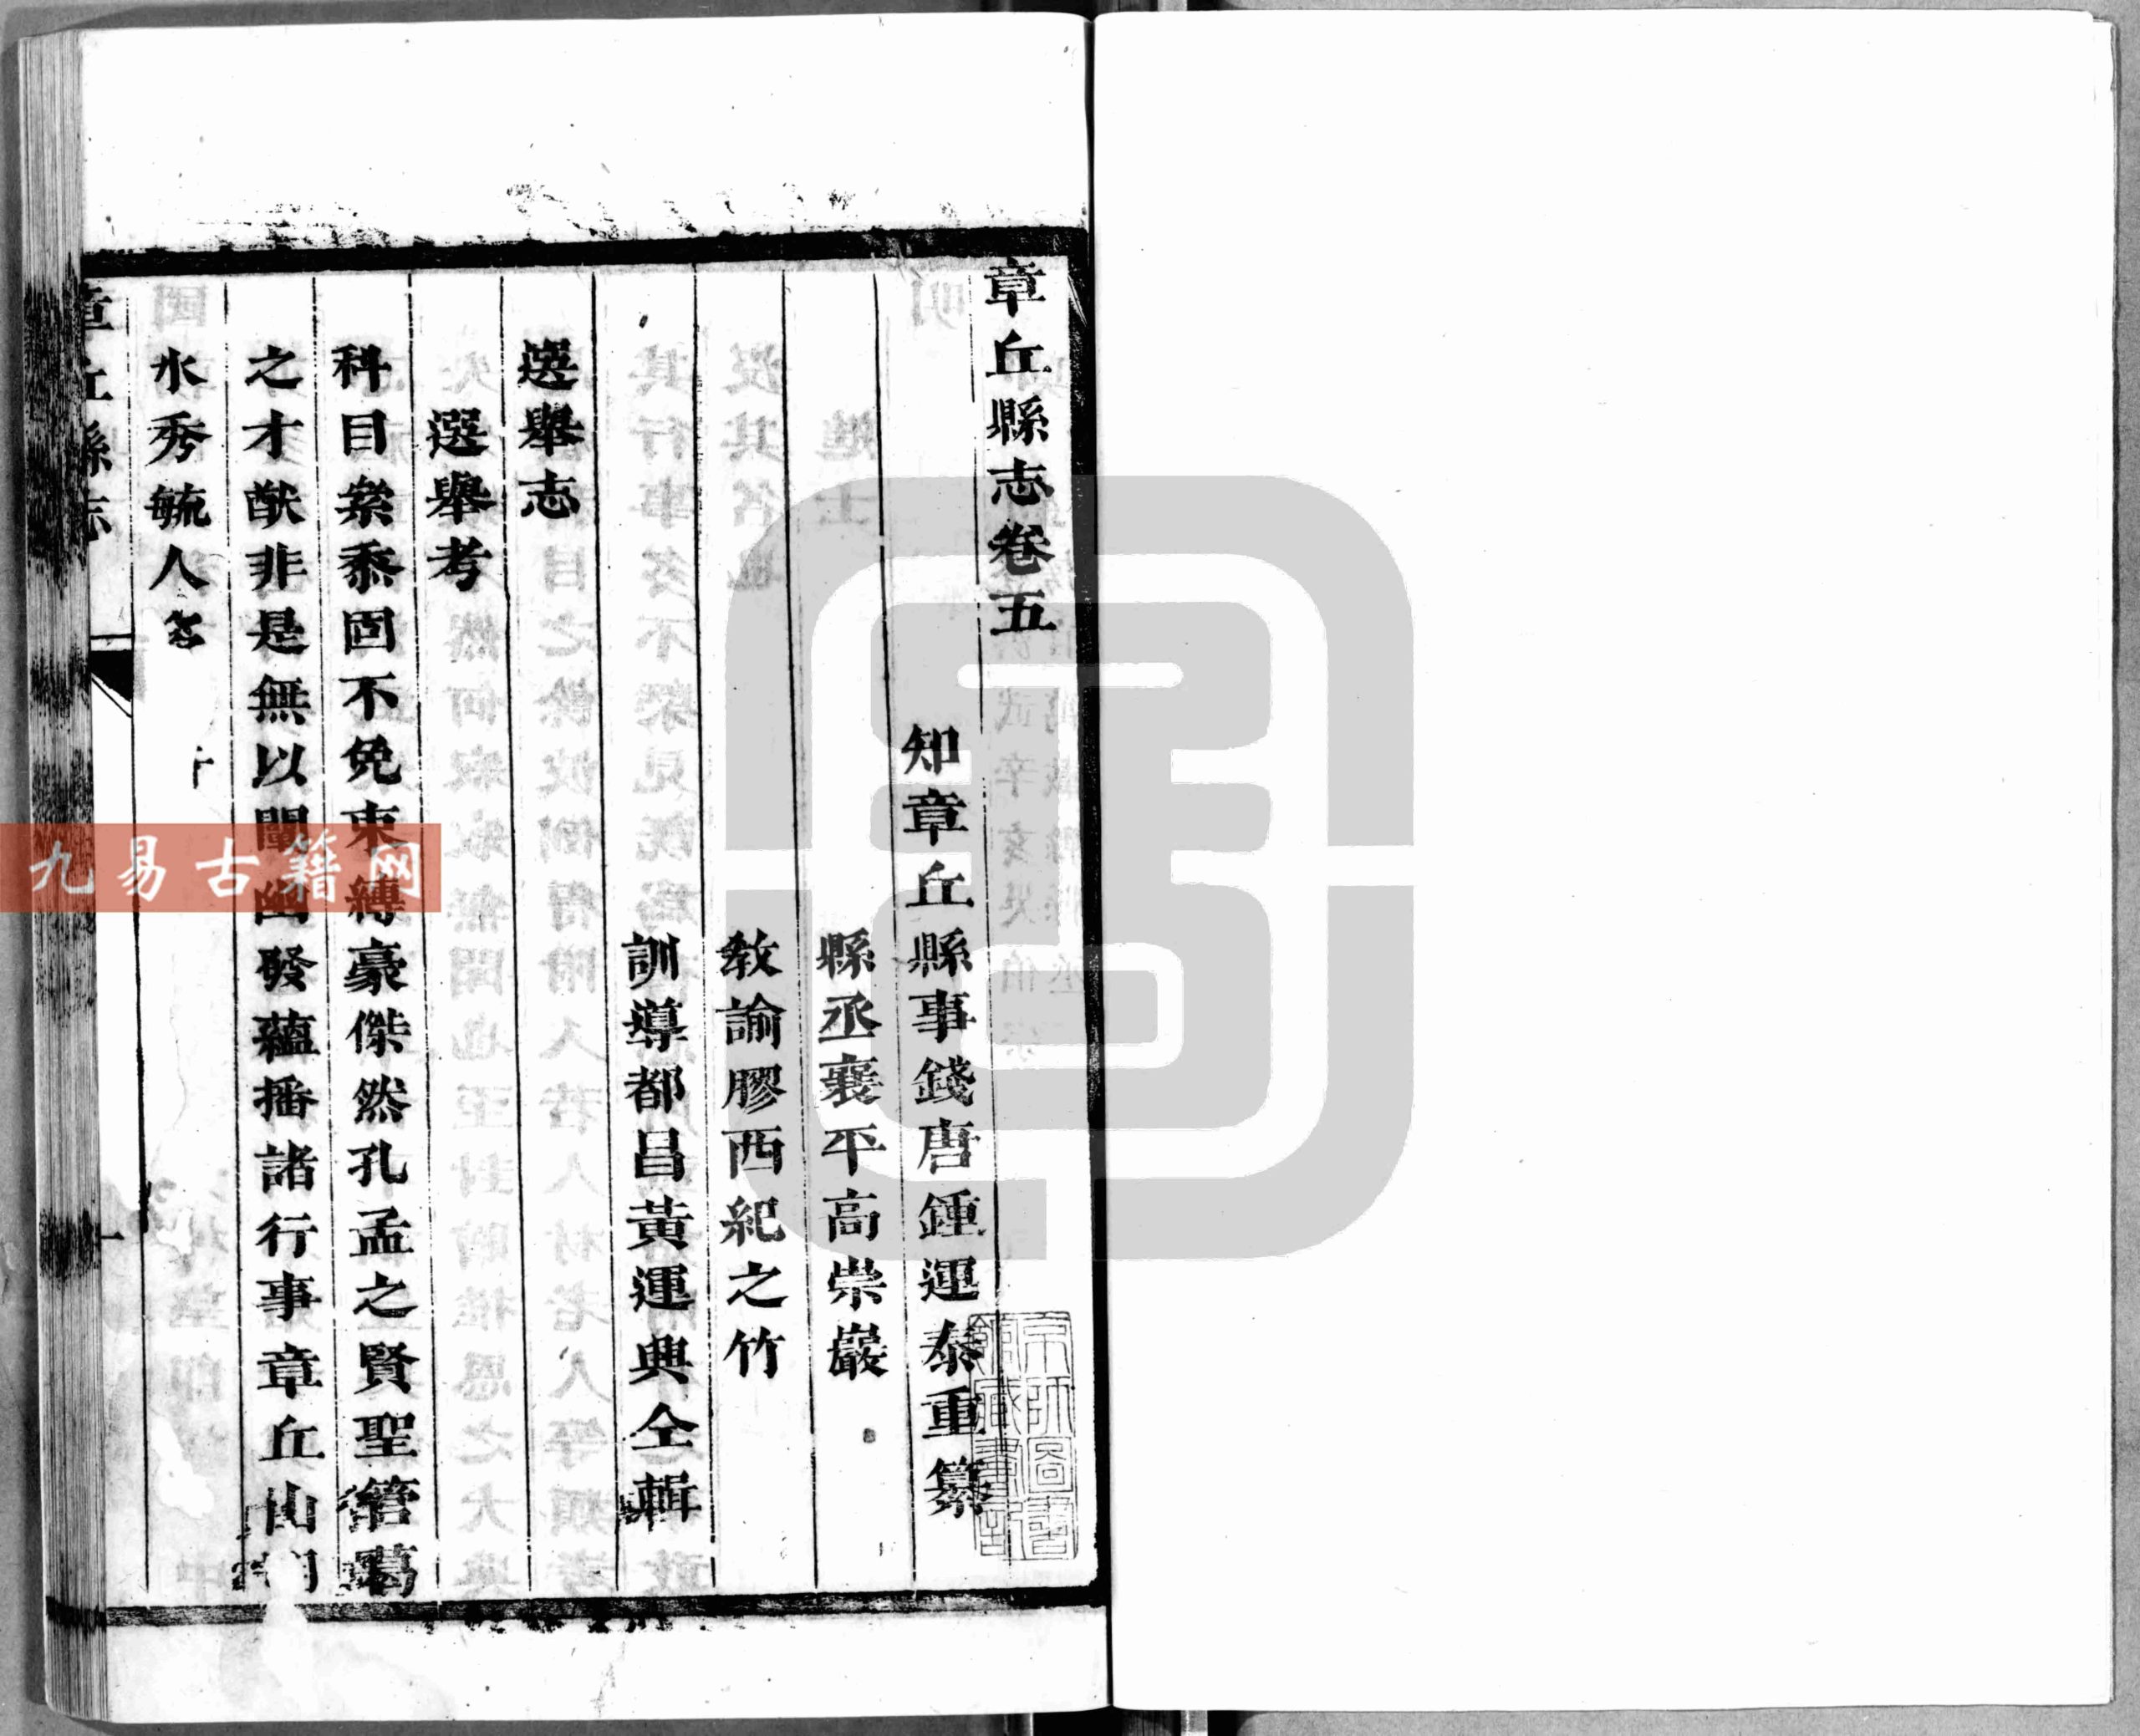 章丘縣志卷五
知章丘縣事錢唐鍾運泰重纂
縣丞襄平高崇巖
教諭膠西紀之竹
訓導都昌黃運興仝輯
選舉志
選舉考
科目絫黍固不免束縛豪傑然孔孟之賢聖管葛
之才猷非是無以闡幽發蘊播諸行事章丘山明
水秀毓人
章丘縣志
一
京師圖書館藏書記
九易古籍网